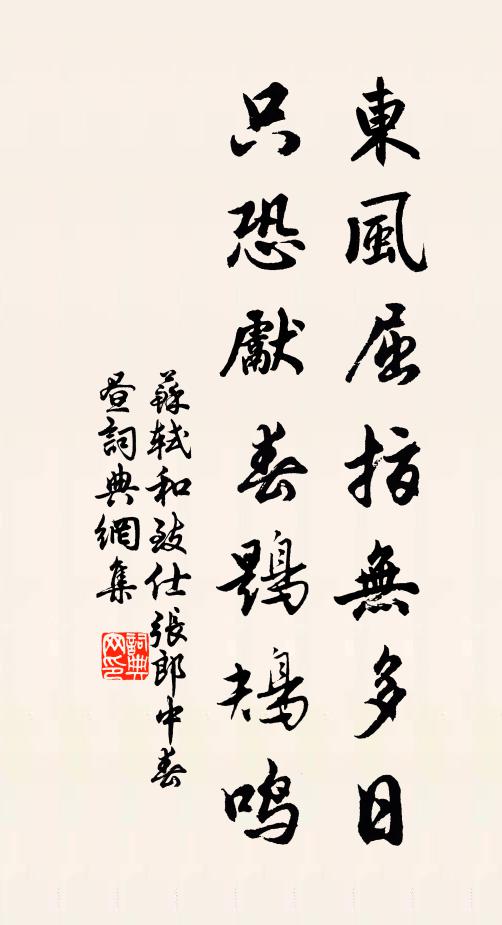 東風屈指無多日
只恐獻春鶗鴂鳴
蘇軾和致仕張郎中春
晝詞典網集
詞典網印